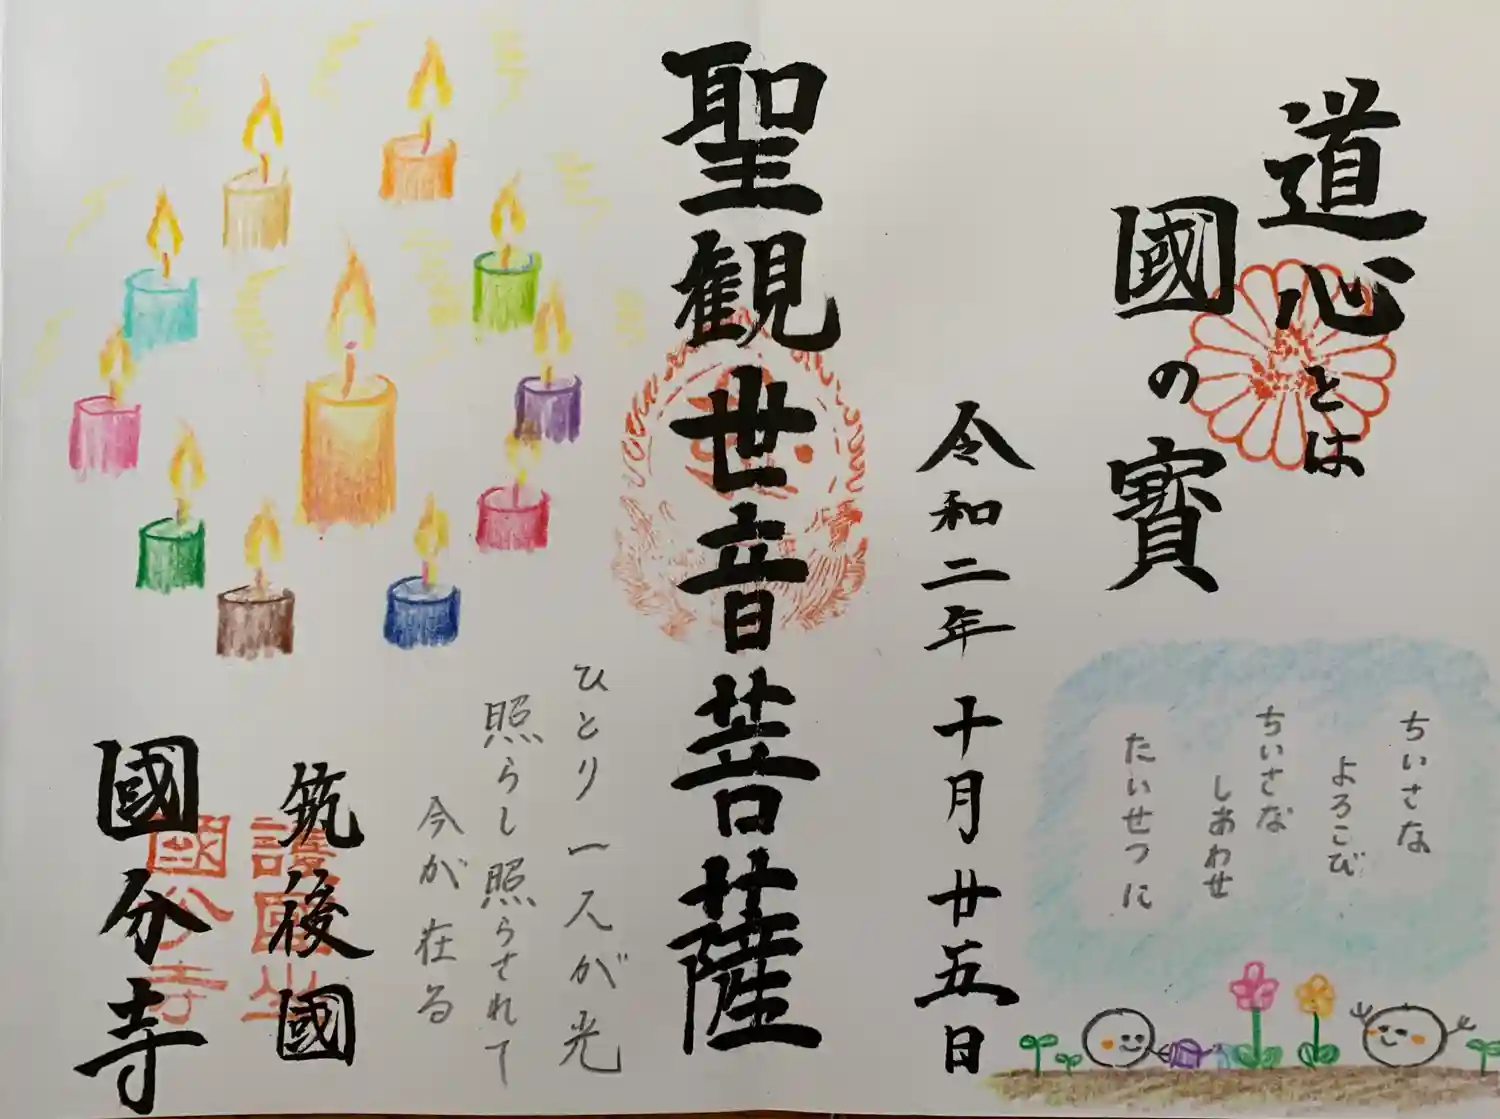 道心とは
國の寶
ちいさな
よろこび
ちいさな
しあわせ
たいせつに
令和二年十月廿五日
聖観世音菩薩
ひとり一人が光
照らし照らされて
今が在る
筑後國
國分寺
國分寺